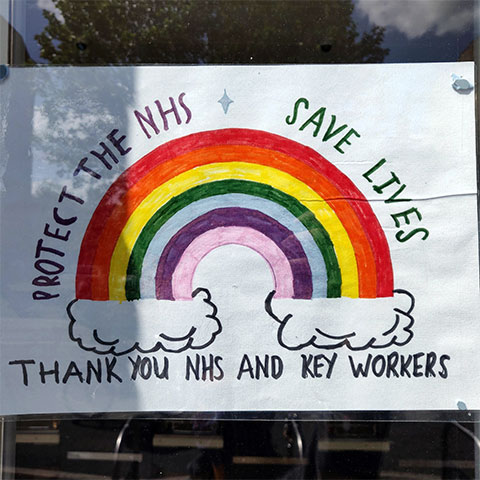 PROTECT THE NHS
SAVE LIVES
THANK YOU NHS AND KEY WORKERS